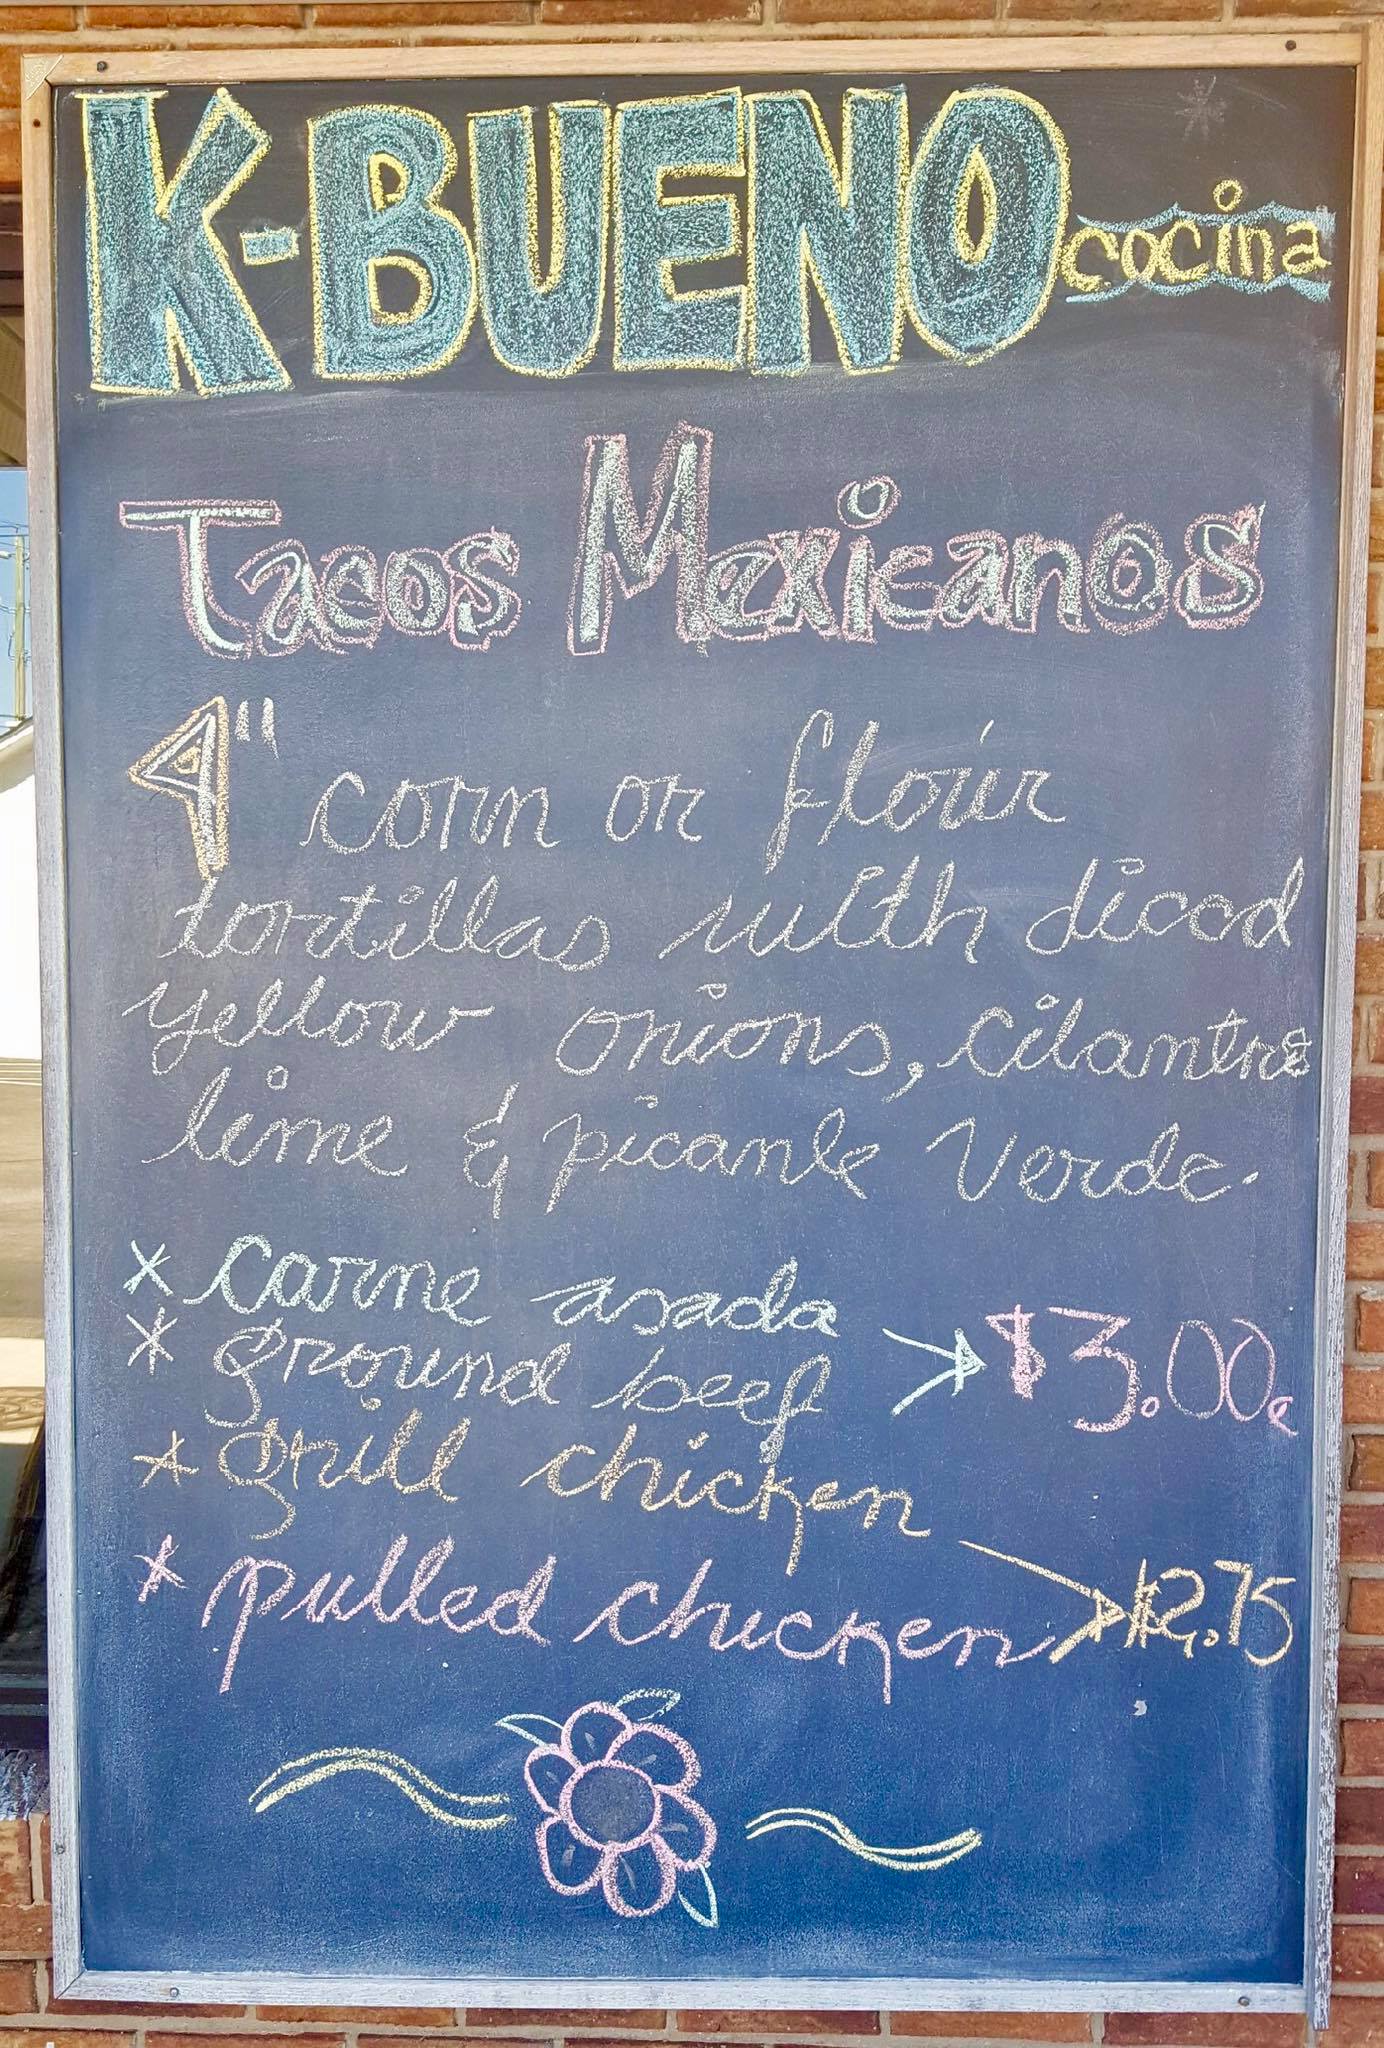 K-BUENO cocina
Tacos Mexicanos
4" corn or flour
tortillas with diced
yellow onions, cilantro
lime & picante Verde.
* carne asada
* ground beef → $3.00
* grill chicken
* pulled chicken → $2.75